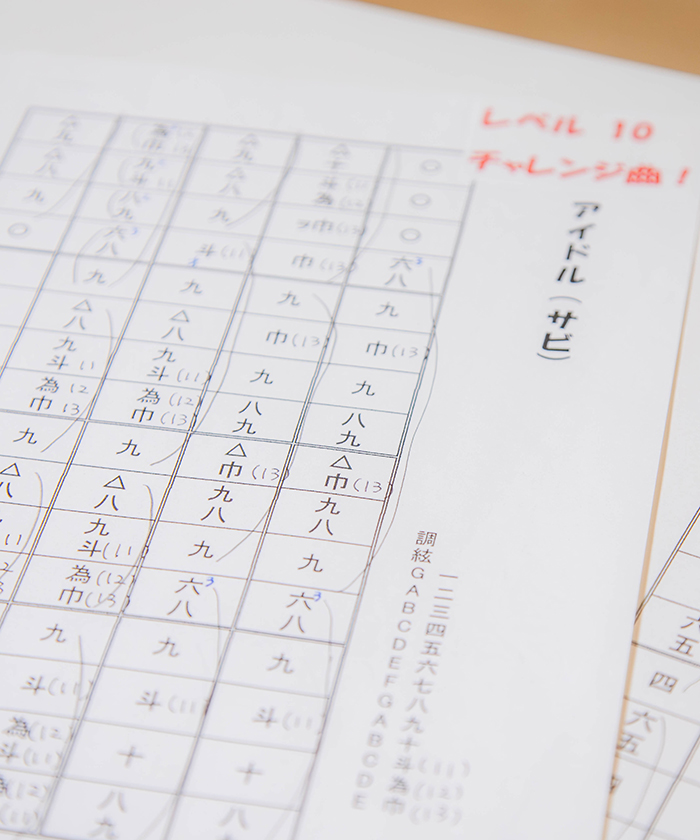 レベル 10
チャレンジ曲！
アイドル（サビ）
調絃
一二三四五六七八九十斗(11)為(12)巾(13)
GABCDEFGABCDE
○ ○ ○ 六3 八 九 巾(13) 九 八 九 △ 巾(13) 九 八 九 六3 八 九 斗(11) 十 八 九
△ 十 斗(11) 為(12) ヲ巾(13) 巾(13) 九 巾(13) 九 八 九 △ 巾(13) 九 八 九 六3 八 九 斗(11) 十 八 九
△ 九 △ 八 九 斗(11) 3 九 △ 八 九 斗(11) 為(12) 巾(13) 九 △ 八 九 斗(11) 為(12) 巾(13) 九 斗(11) 為(12) 斗(11) 為(12)
為 巾 九 斗 八 九 六3 八 九 △ 八 九 斗 11 為 12 巾 13 九 △ 八
△ 九 △ 八 九 ○
六 五 四 六 五